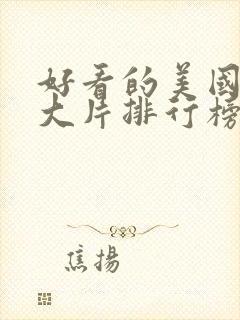 好看的美國
大片排行榜
焦揚